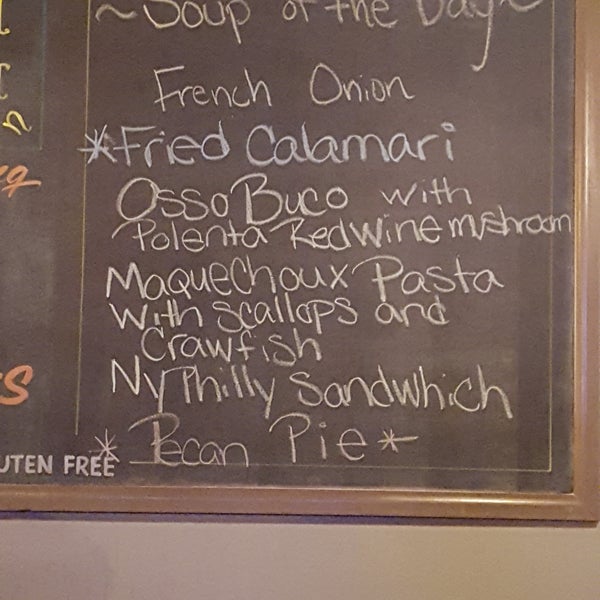 ~Soup of the Day~
French Onion
*Fried Calamari
Osso Buco with
Polenta Red Wine mushroom
Maquechoux Pasta
With scallops and
Crawfish
Ny Philly Sandwhich
*Pecan Pie*
UTEN FREE